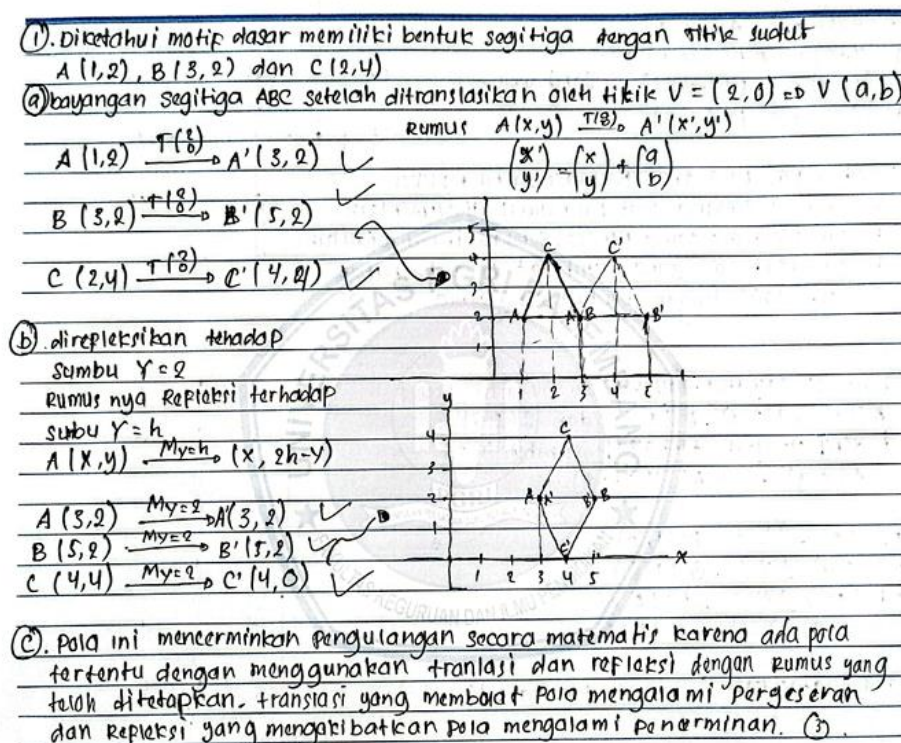 ①. Diketahui motif dasar memiliki bentuk segitiga dengan titik sudut
A (1,2), B (3,2) dan C (2,4)
ⓐ bayangan segitiga ABC setelah ditranslasikan oleh titik V = (2,0) => V (a,b)
Rumus A(x,y) T(2 0) → A'(x',y')
(x' y') = (x y) + (a b)
A (1,2) T(2 0) → A' (3,2) ✓
B (3,2) T(2 0) → B' (5,2) ✓
C (2,4) T(2 0) → C' (4,4) ✓
5
4 C C'
3
2 A A' B B'
1
1 2 3 4 5
ⓑ. direpleksikan tehadap
sumbu Y = 2
Rumus nya Repleksi terhadap
subu Y = h
A (x,y) My=h → (x, 2h-y)
A (3,2) My=2 → A'(3,2) ✓
B (5,2) My=2 → B' (5,2) ✓
C (4,4) My=2 → C' (4,0) ✓
y
4 C
3
2 A A' B' B
1
C'
1 2 3 4 5 x
ⓒ. Pola ini mencerminkan pengulangan secara matematis karena ada pola
tertentu dengan menggunakan tranlasi dan refleksi dengan rumus yang
telah ditetapkan. translasi yang membuat pola mengalami pergeseran
dan Repleksi yang mengakibatkan pola mengalami pencerminan. ③.
UNIVERSITAS PGRI PALEMBANG
FAKULTAS KEGURUAN DAN ILMU PENDIDIKAN